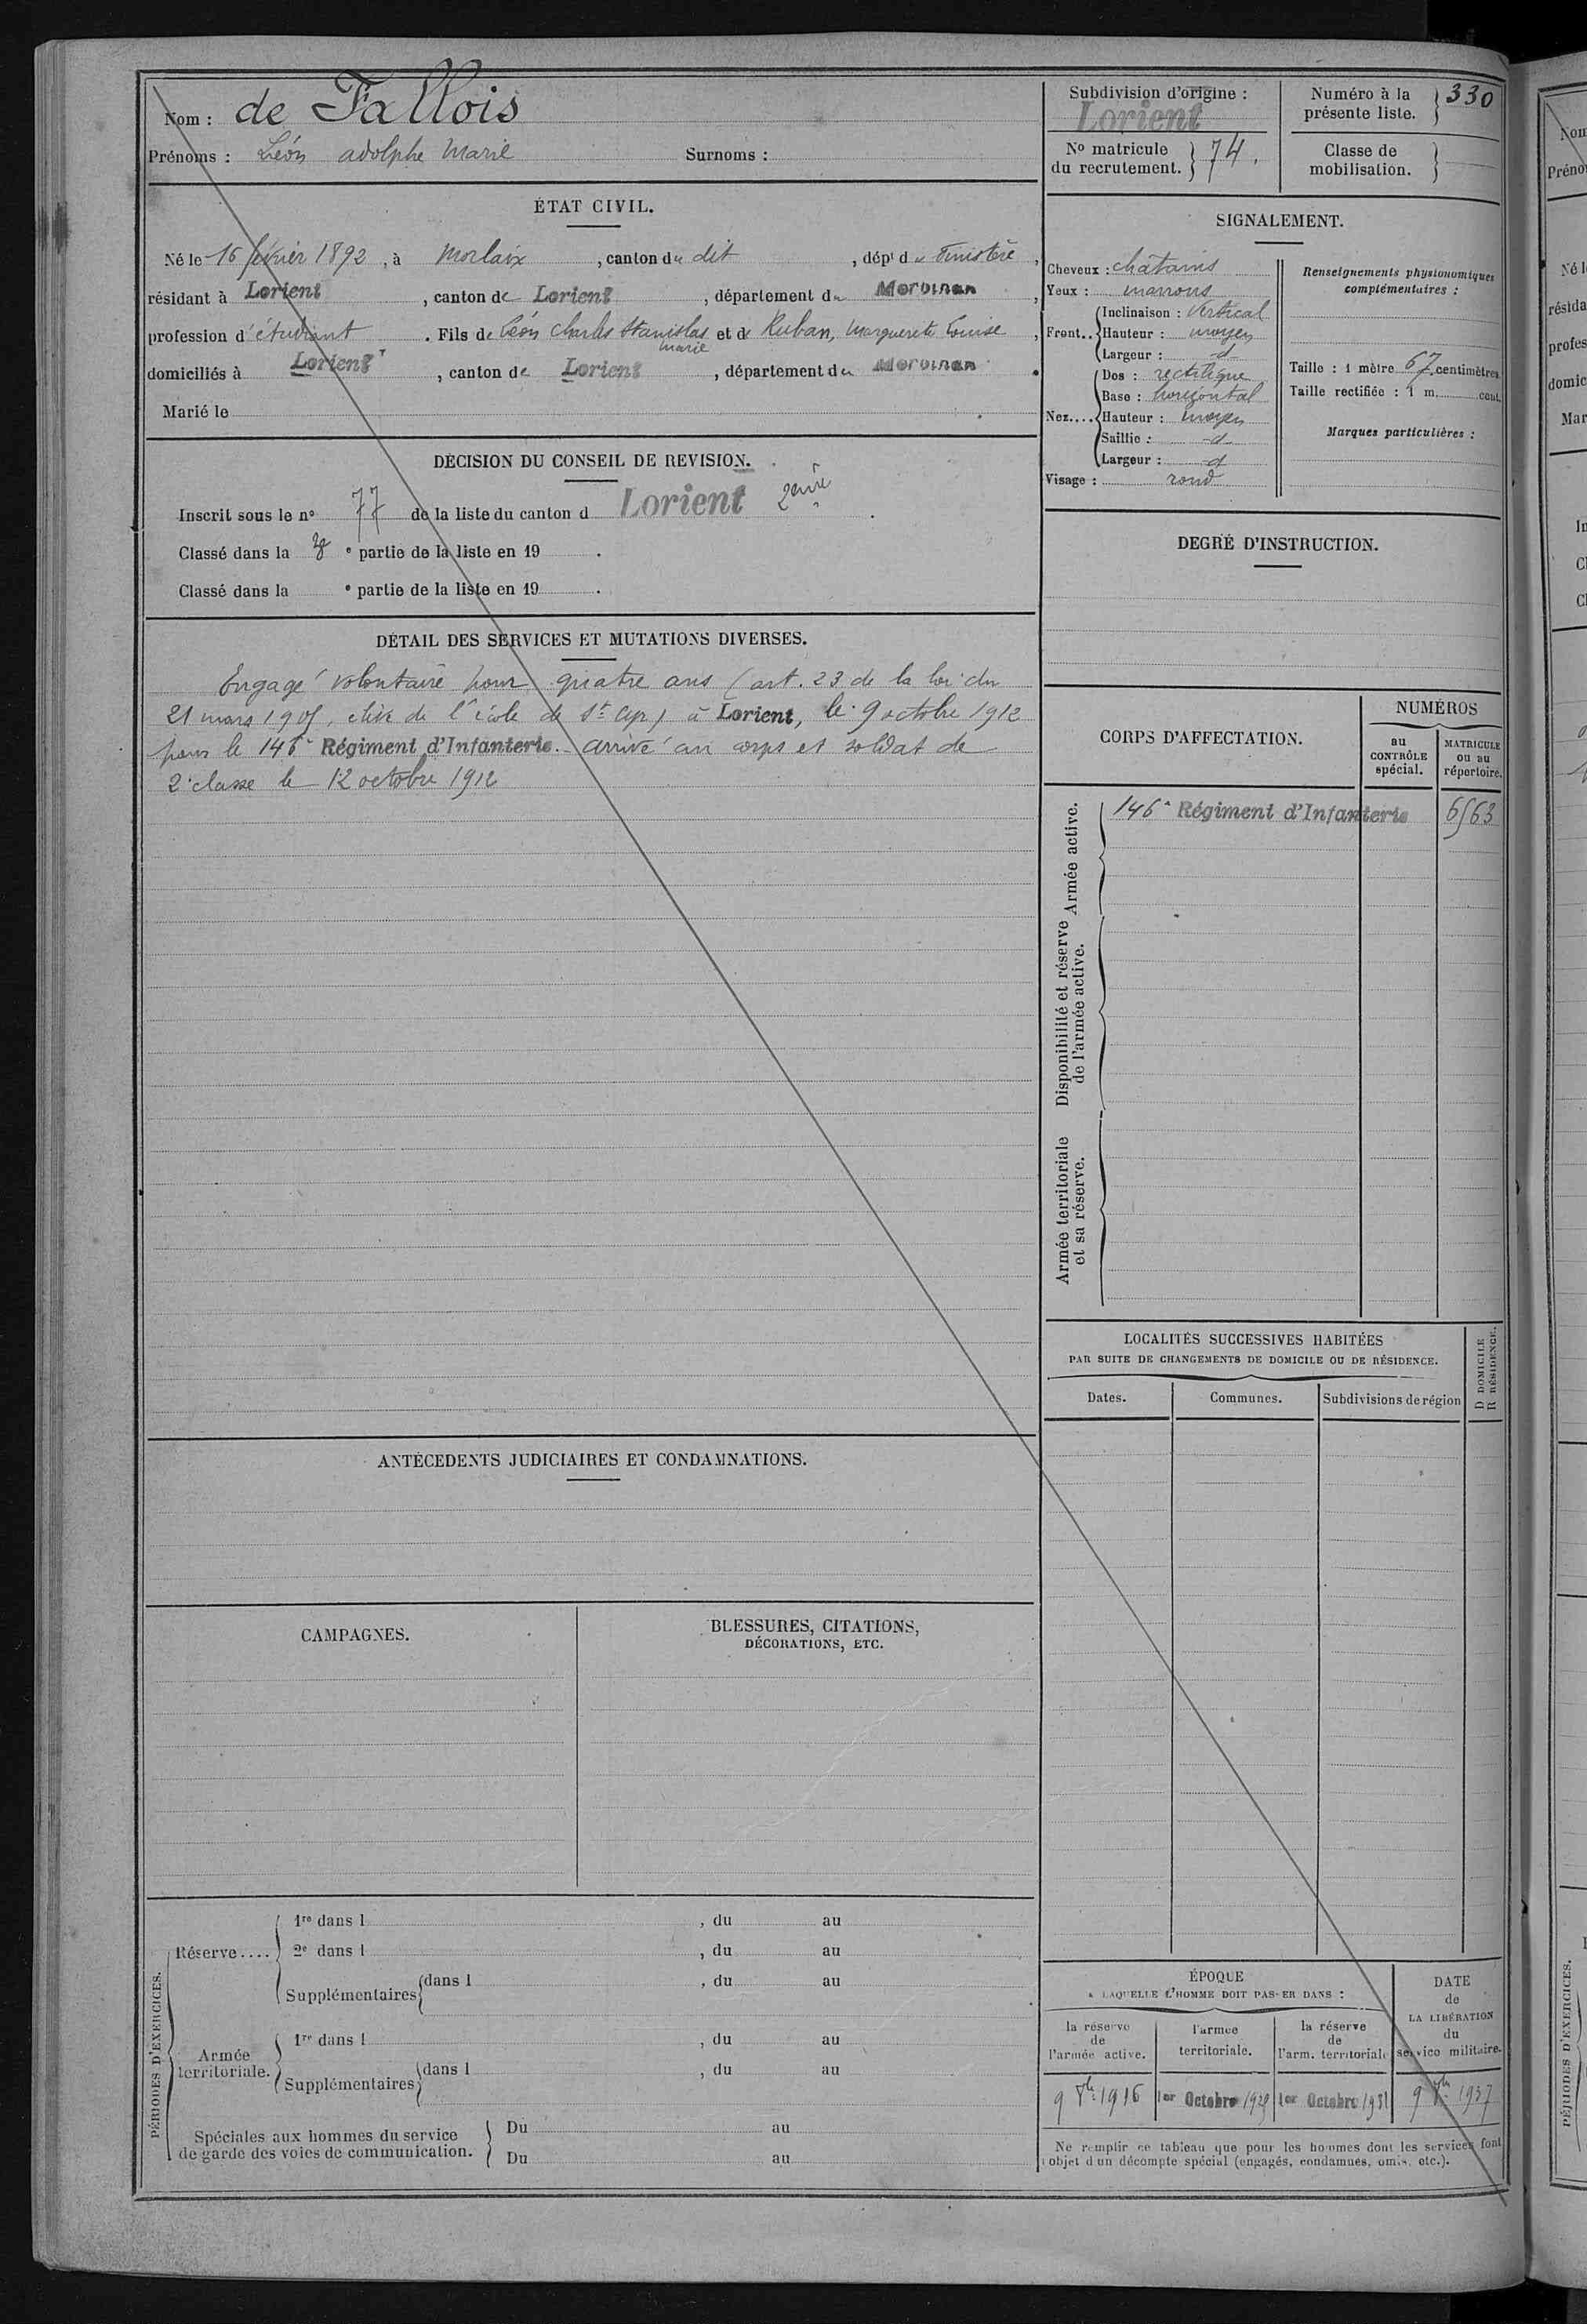 Nom : de Fallois
Prénoms : Léon adolphe Marie Surnoms :
ÉTAT CIVIL.
Né le 16 février 1892, à Morlaix, canton du dit, dépt du Finistère,
résidant à Lorient, canton de Lorient, département du Morbihan,
profession d'étudiant. Fils de Léon Charles Stanislas et de Ruban, Marguerite Louise
marie
domiciliés à Lorient, canton de Lorient, département du Morbihan.
Marié le
DÉCISION DU CONSEIL DE REVISION.
Inscrit sous le no 77 de la liste du canton d Lorient 2e
Classé dans la e partie de la liste en 19 .
Classé dans la e partie de la liste en 19 .
DÉTAIL DES SERVICES ET MUTATIONS DIVERSES.
Engagé volontaire pour quatre ans (art. 23 de la loi du
21 mars 1905, élève de l'école de St Cyr) à Lorient, le 9 octobre 1912
pour le 146e Régiment d'Infanterie. arrivé au corps et soldat de
2e classe le 12 octobre 1912
ANTÉCÉDENTS JUDICIAIRES ET CONDAMNATIONS.
CAMPAGNES.
BLESSURES, CITATIONS,
DÉCORATIONS, ETC.
PÉRIODES D'EXERCICES.
Réserve....
1re dans l , du au
2e dans l , du au
Supplémentaires dans l , du au
Armée
territoriale.
1re dans l , du au
Supplémentaires dans l , du au
Spéciales aux hommes du service
de garde des voies de communication.
Du au
Du au
Subdivision d'origine :
Lorient
No matricule
du recrutement. 74.
Numéro à la
présente liste. 330
Classe de
mobilisation.
SIGNALEMENT.
Cheveux : châtains
Yeux : marrons
Front.. Inclinaison : Vertical
Hauteur : moyen
Largeur : d
Nez.... Dos : rectiligne
Base : horizontal
Hauteur : moyen
Saillie : d
Largeur : d
Visage : rond
Renseignements physionomiques
complémentaires :
Taille : 1 mètre 67 centimètres.
Taille rectifiée : 1 m. cent.
Marques particulières :
DEGRÉ D'INSTRUCTION.
CORPS D'AFFECTATION.
NUMÉROS
au
CONTRÔLE
spécial.
MATRICULE
ou au
répertoire.
Armée active.
146e Régiment d'Infanterie 6563
Disponibilité et réserve
de l'armée active.
Armée territoriale
et sa réserve.
LOCALITÉS SUCCESSIVES HABITÉES
PAR SUITE DE CHANGEMENTS DE DOMICILE OU DE RÉSIDENCE.
D DOMICILE
R RÉSIDENCE.
Dates. Communes. Subdivisions de région
ÉPOQUE
A LAQUELLE L'HOMME DOIT PASSER DANS :
la réserve
de
l'armée active.
l'armée
territoriale.
la réserve
de
l'arm. territoriale
DATE
de
LA LIBÉRATION
du
service militaire.
9 8bre 1916 1er Octobre 1925 1er Octobre 1931 9 8bre 1937
Ne remplir ce tableau que pour les hommes dont les services font
l'objet d'un décompte spécial (engagés, condamnés, omis, etc.).